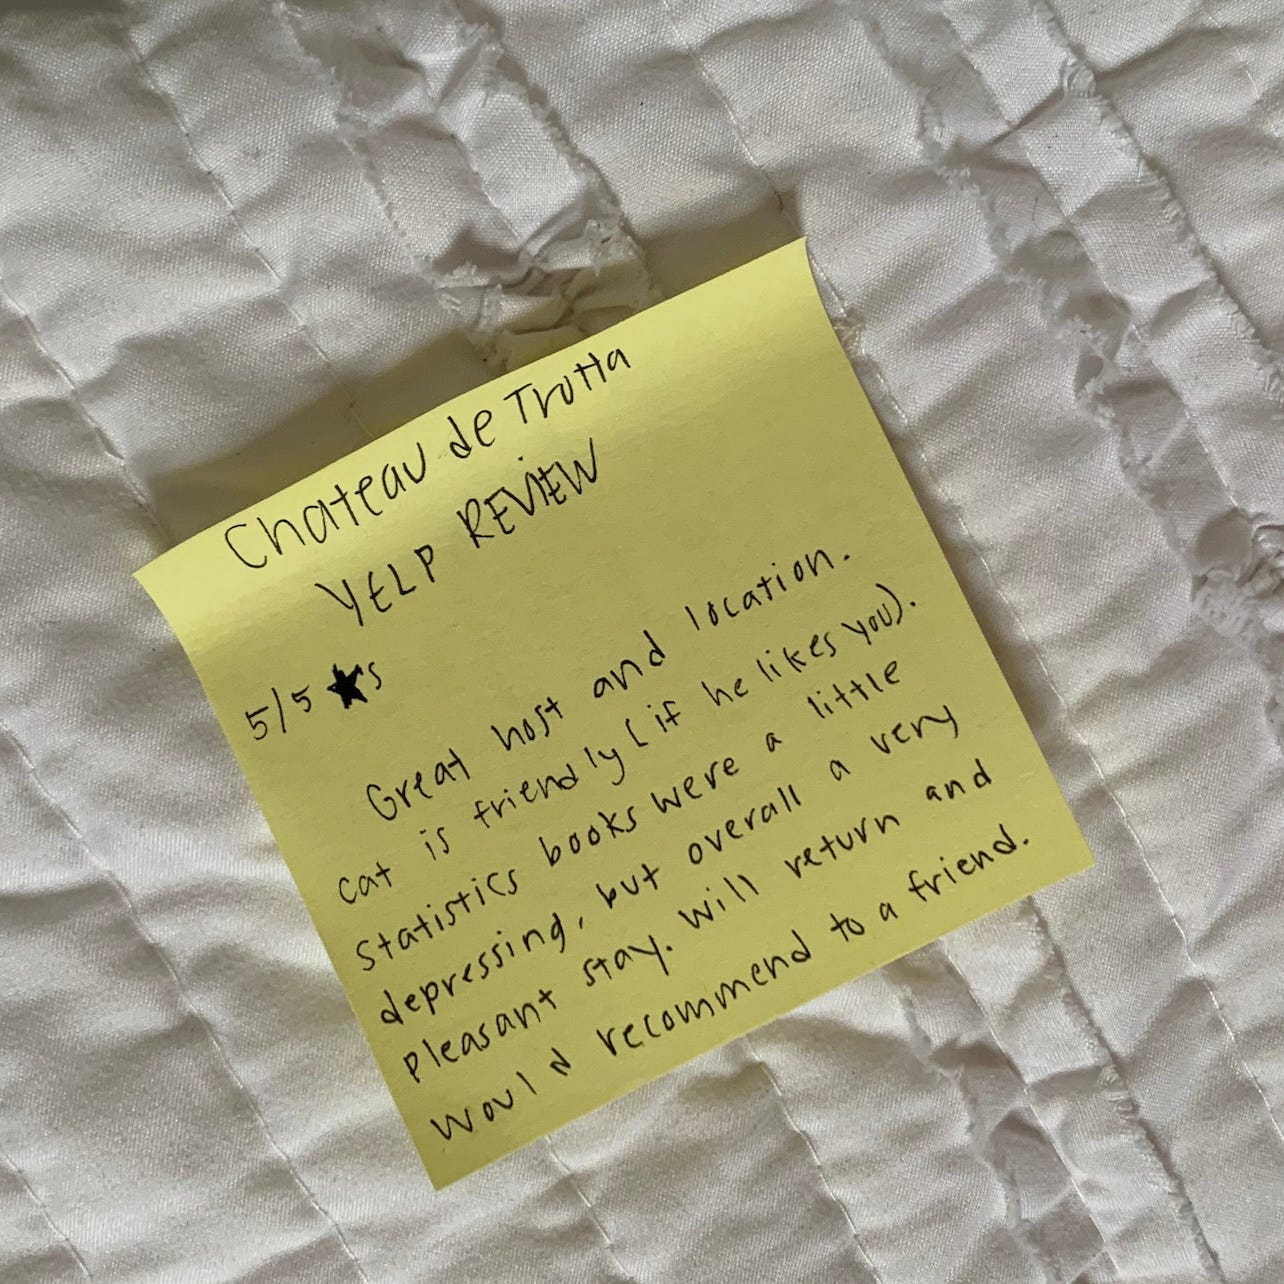 Chateau de Trotta
YELP REVIEW
5/5 ★'s
Great host and location.
cat is friendly (if he likes you).
Statistics books were a little
depressing, but overall a very
pleasant stay. Will return and
would recommend to a friend.